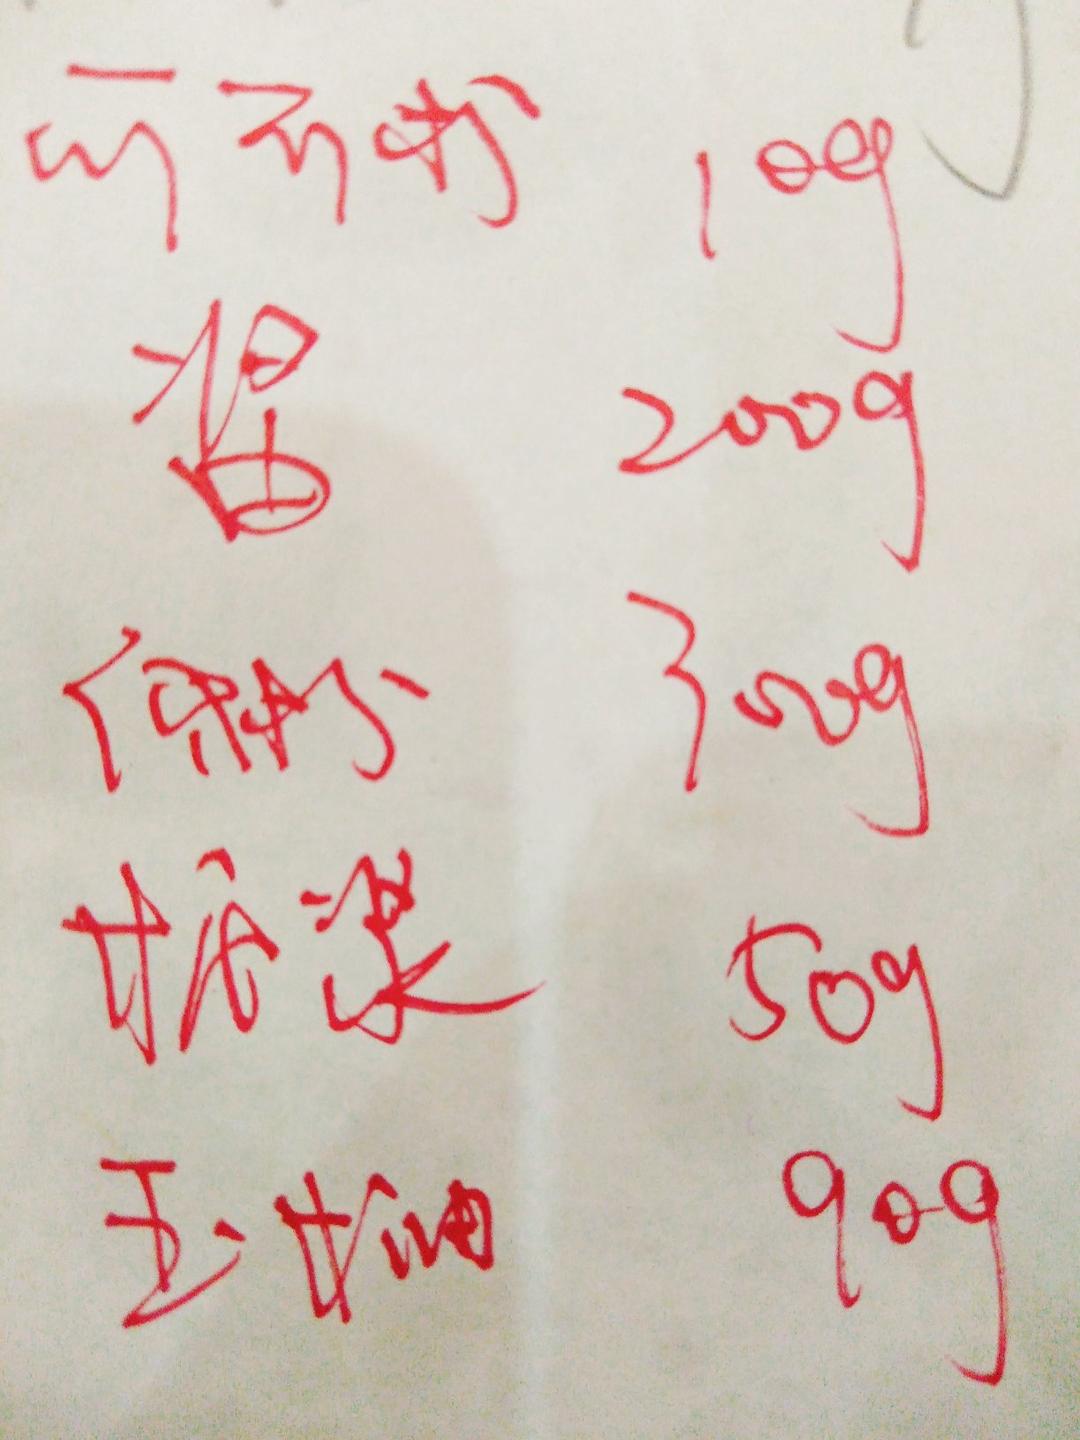 可可粉 10g
酱 200g
低粉 300g
糖浆 50g
玉米油 90g